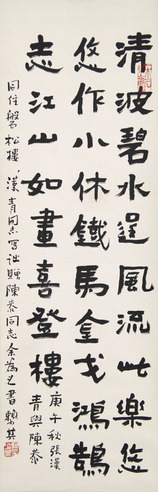 清波碧水逞風流此樂悠
悠作小休鐵馬金戈鴻鵠
志江山如畫喜登樓
庚午秋張漢
青與陳恭
同住磐松樓漢青同志写
贈陳恭同志余為之書黎其